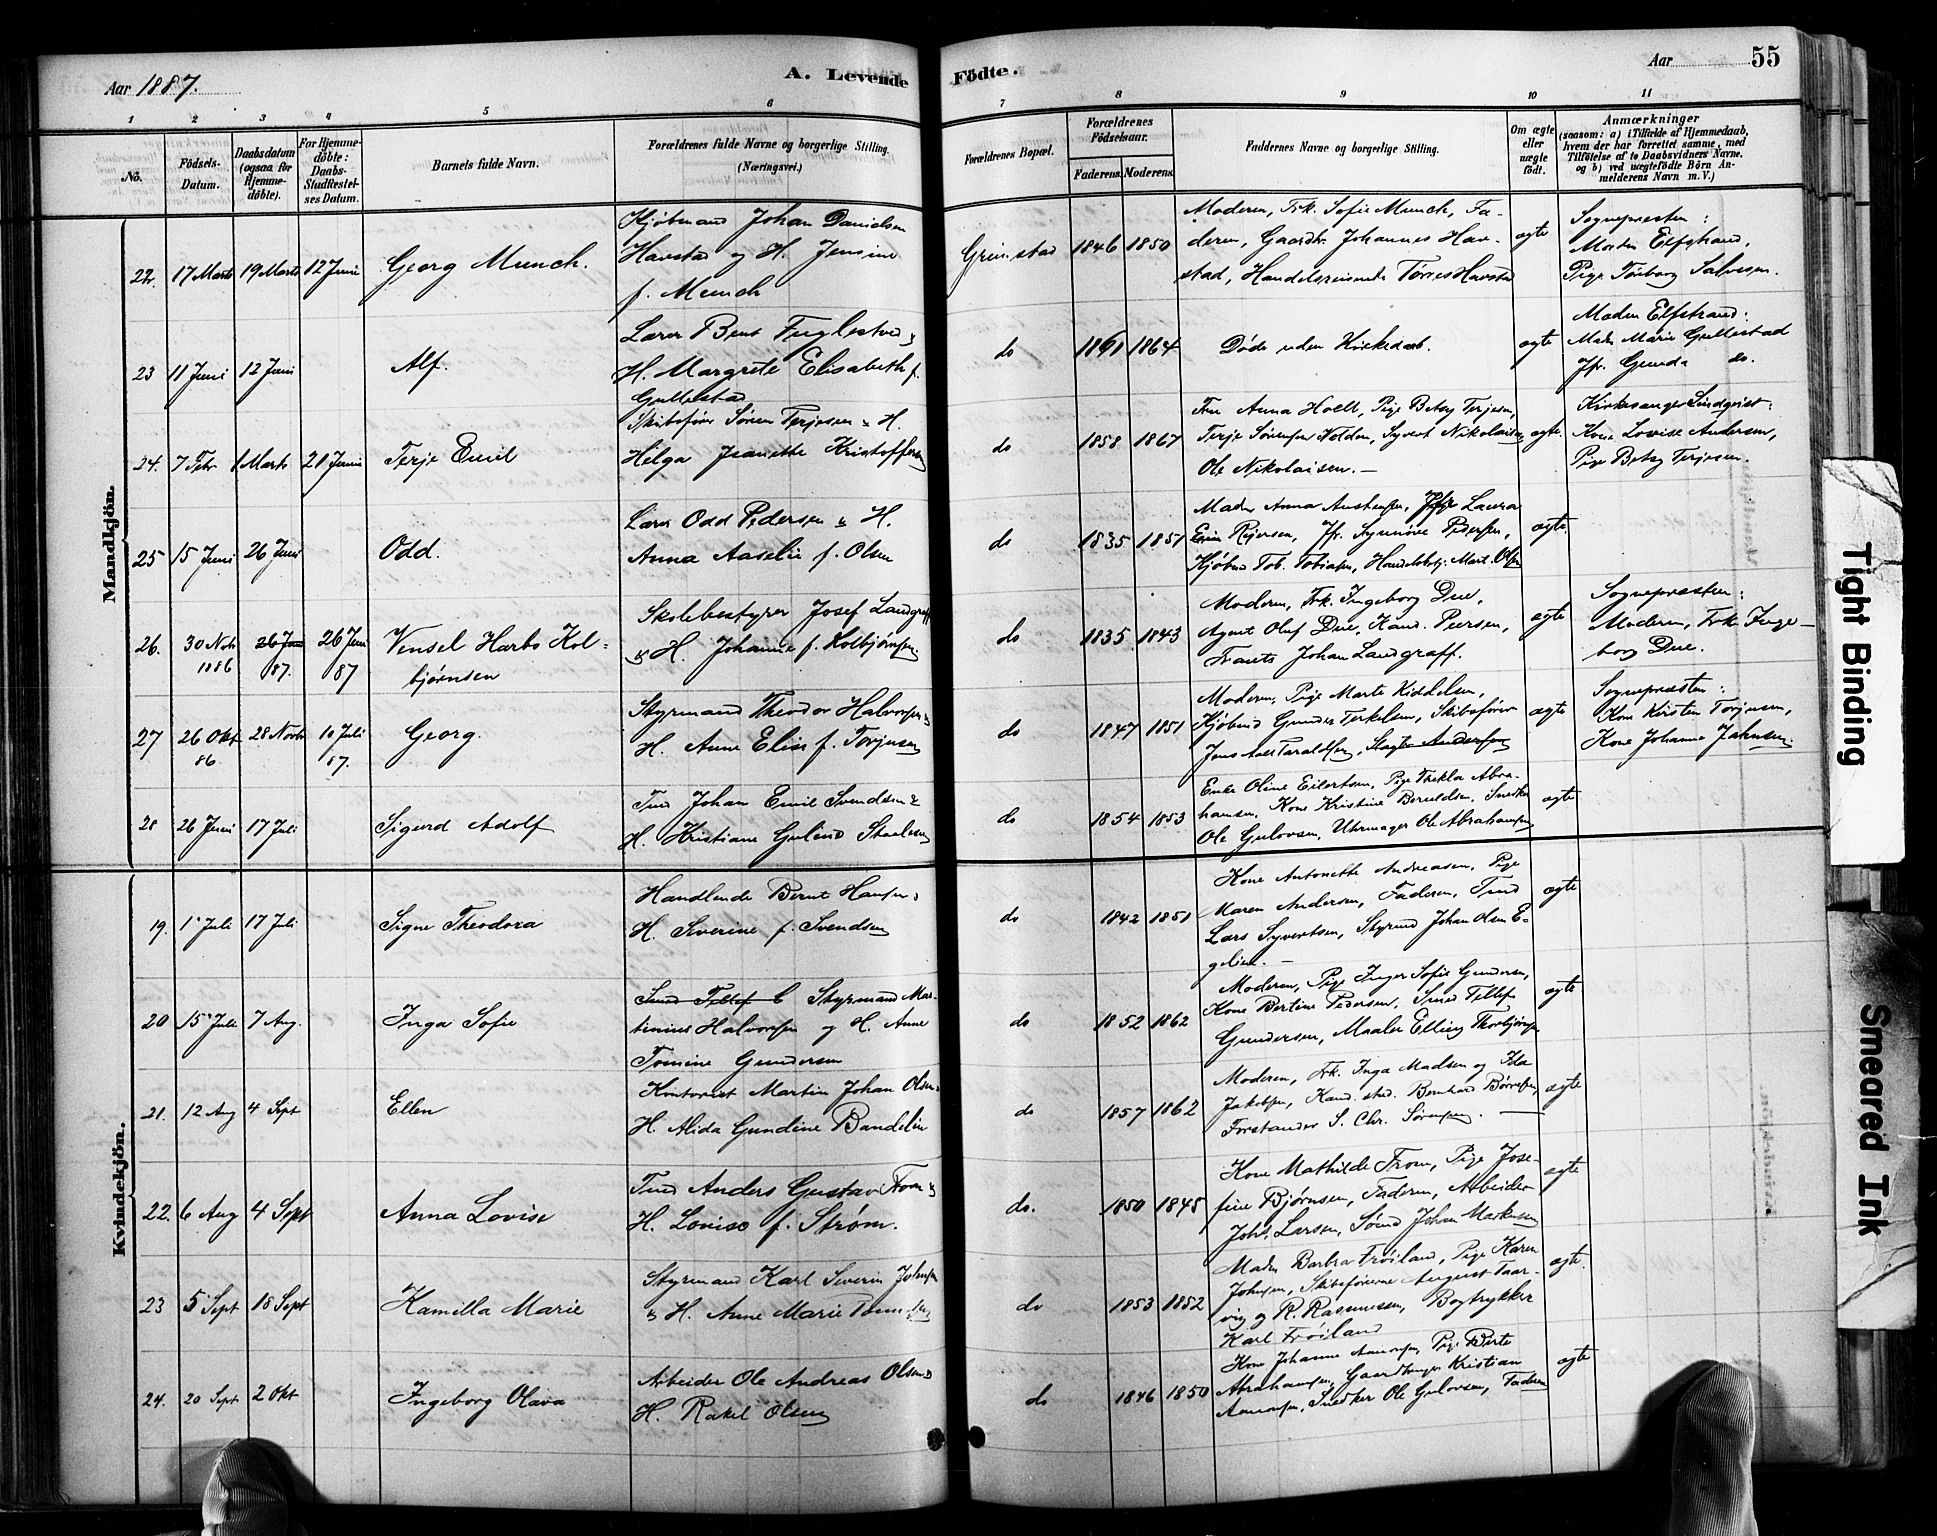 Aar 1887.
A. Levende Födte.
Aar 55
1 2 3 4 5 6 7 8 9 10 11
No.
Födsels-Datum.
Daabsdatum (ogsaa for Hjemme-döbte).
For Hjemme-döbte: Daabs-Stadfæstel-ses Datum.
Barnets fulde Navn.
Forældrenes fulde Navne og borgerlige Stilling.
(Næringsvei.)
Forældrenes Bopæl.
Forældrenes Födselsaar.
Faderens. Moderens.
Faddernes Navne og borgerlige Stilling.
Om ægte eller uægte födt.
Anmærkninger
(saasom: a) i Tilfælde af Hjemmedaab,
hvem der har forrettet samme, med
Tilföielse af to Daabsvidners Navne,
og b) ved uægtefödte Börn An-
melderens Navn m. V.)
Mandkjön.
22. 17 Marts 19 Marts 12 Juni Georg Munch.
Kjøbmand Johan Danielsen
Havstad og H. Jensine
f. Munch
Grimstad 1846 1850
Moderen, Frk. Sofie Munch, Fa-
deren, Gaardbr. Johannes Hav-
stad, Handelsreisende Tørres Havstad
ægte
Sognepresten:
Madm Elfstrand,
Pige Torborg Salvesen.
23 11 Juni 12 Juni Alf.
Lærer Bent Fuglestved &
H. Margrete Elisabeth f.
Gullestad
do 1861 1864
Døde uden Kirkedaab.
ægte
Madm Elfstrand:
Madm Marie Gullestad
Jfr. Gunda do.
24. 7 Febr 1 Marts 21 Juni Terje Emil
Skibsfører Søren Terjesen & H.
Helga Jeanette Kristoffersen
do 1858 1867
Fru Anna Holt, Pige Betsy Terjesen,
Terje Sørensen Volden, Syvert Nikolaisen,
Ole Nikolaisen. —
ægte.
Kirkesanger Lindqvist:
Kone Lovise Andersen,
Pige Betsy Terjesen.
25 15 Juni 26 Juni Odd.
Lærer Odd Pedersen & H.
Anna Aaselie f. Olsen
do 1835 1851
Madm Anna Austensen, Laura
Reiersen, Jfr. Synnøve Pedersen,
Kjøbmd Tob. Tobiasen, Handelsbetj. Mart. Olsen
ægte.
26. 30 Novb 1886 26 Juni 87. 26 Juni 87
Vensel Harbo Kol-
bjørnsen
Skolebestyrer Josef Landgraff
& H. Johanne f. Kolbjørnsen.
do 1835 1843
Moderen, Frk. Ingeborg Due,
Agent Oluf Due, Kand. Peersen,
Frants Johan Landgraff.
ægte
Sognepræsten:
Moderen, Frk. Inge-
borg Due.
27 26 Okt 86 28 Novb 10 Juli 87. Georg.
Styrmand Theodor Halvorsen &
H. Anne Elise f. Torjusen
do 1847 1851
Moderen, Pige Marte Kiddelsen,
Kjøbmd Gunder Terkelsen, Skibsfører
Jens Taraldsen, Slagter Andersen
ægte
Sognepræsten:
Kone Kirsten Torjusen,
Kone Johanne Jahnsen.
28 26 Juni 17 Juli Sigurd Adolf
Tmd Johan Emil Svendsen &
H. Kristiane Guline Staalesen
do 1854 1853
Enke Oline Eilertsen, Pige Thekla Abra-
hamsen. Kone Kristine Berntsen, Snedker
Ole Gulovsen, Uhrmager Ole Abrahamsen
ægte
Kvindekjön.
19. 1 Juli 17 Juli Signe Theodora
Handlende Bernt Hansen &
H. Severine f. Svendsen
do 1842 1851
Kone Antonette Andreasen, Pige
Maren Andersen, Faderen, Tmd
Lars Syvertsen, Styrmd Johan Olsen E-
geliae. —
ægte
20 15 Juli 7 Aug. Inga Sofie
Smed Tellef G Styrmand Mar-
tinius Halvorsen og H. Anne
Tomine Gundersen
do 1852 1862
Moderen, Pige Inger Sofie Gundersen,
Kone Bertine Pedersen, Smed Tellef
Gundersen, Maaler Elling Thorbjørnsen
ægte
21. 12 Aug 4 Sept Ellen
Kontorist Martin Johan Olsen &
H. Alida Gundine Bandelin
do 1857 1862
Moderen, Frk. Inga Madsen og Ida
Jakobsen, Kand. stud. Bernhard Børresen,
Forstander S. Chr. Sørensen. —
ægte
22. 6 Aug 4 Sept Anna Lovise
Tmd Anders Gustav From &
H. Lovise f. Strøm.
do. 1850 1845
Kone Mathilde From, Pige Jose-
fine Bjørnsen, Faderen, Arbeider
Johs. Larsen, Sømd Johan Markusen
ægte
23 5 Sept 18 Sept Kamilla Marie
Styrmand Karl Severin Johnsen
& H. Anne Marie
do 1853 1852
Madm Barbra Frøiland, Pige Karen
Johnsen, Skibsførerne August Taar-
vig og R. Rasmussen, Bogtrykker
Karl Frøiland
ægte.
24. 20 Sept 2 Okt Ingeborg Olava
Arbeider Ole Andreas Olsen &
H. Rakel Olsen
do 1846 1850
Kone Johanne Aanonsen, Pige Berte
Abrahamsen, Gaardbruger Kristian
Aanonsen, Snedker Ole Gulovsen, Faderen
ægte
Tight Binding
Smeared Ink